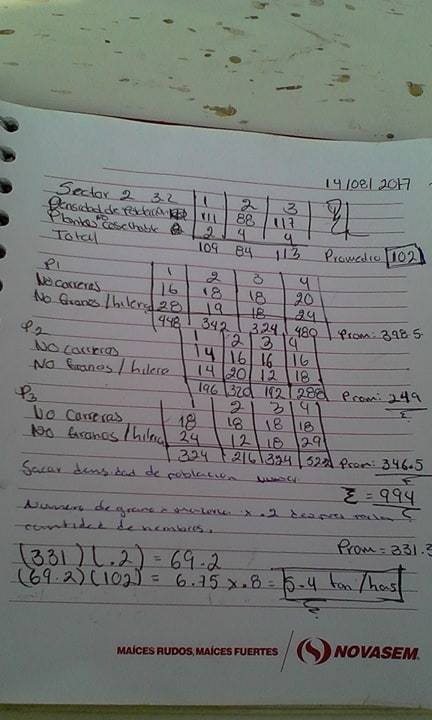 14/08/2017
Sector 2 3.2 1 2 3
Densidad de 111 88 117
Plantas no cosechable 2 4 4
Total 109 84 113 Promedio 102
P1 1 2 3 4
No carreras 16 18 18 20
No Granos/hilera 28 19 18 24
448 342 324 480 Prom: 398.5
P2 1 2 3 4
No carreras 14 16 16 16
No Granos/hilera 14 20 12 18
196 320 192 288 Prom: 249
P3 1 2 3 4
No Carreras 18 18 18 18
No Granos/hilera 24 12 18 29
324 216 324 522 Prom: 346.5
Sacar densidad de población
Σ = 994
Numero de x .2 despues
cantidad de
Prom = 331.3
(331)(.2) = 69.2
(69.2)(102) = 6.75 x .8 = 5.4 ton/has
MAÍCES RUDOS, MAÍCES FUERTES NOVASEM